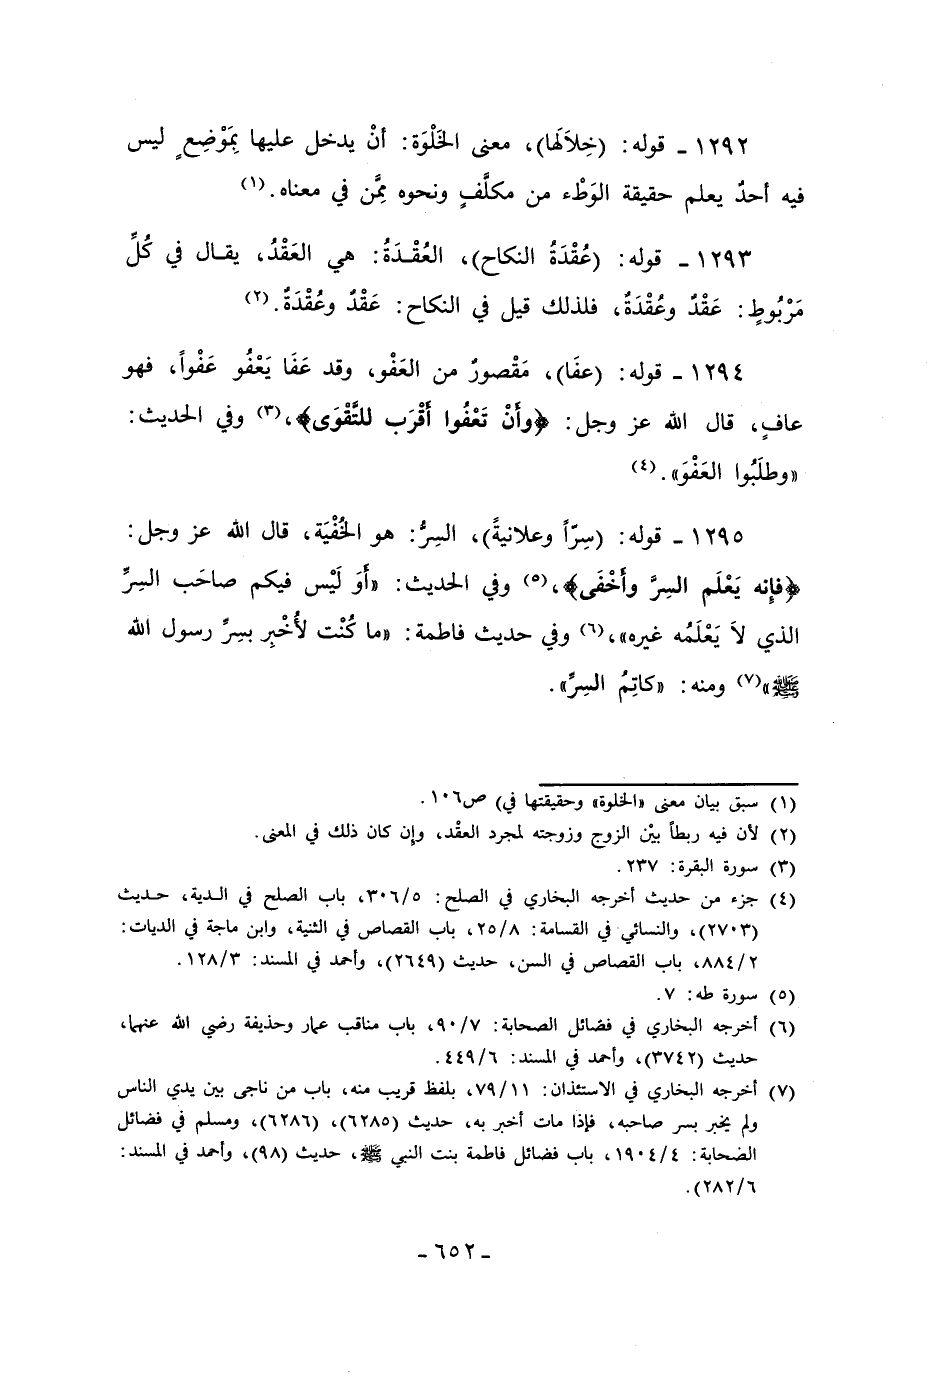 ١٢٩٢ ـ قوله: (خِلاَلَها)، معنى الخَلْوَة: أنْ يدخل عليها بِمَوْضِعٍ ليس
فيه أحدٌ يعلم حقيقة الوَطْء من مكلَّفٍ ونحوه مِمَّن في معناه.(١)
١٢٩٣ ـ قوله: (عُقْدَةُ النكاح)، العُقْدَةُ: هي العَقْدُ، يقال في كُلِّ
مَرْبُوطٍ: عَقْدٌ وعُقْدَةٌ، فلذلك قيل في النكاح: عَقْدٌ وعُقْدَةٌ.(٢)
١٢٩٤ ـ قوله: (عفَا)، مَقْصورٌ من العَفْو، وقد عَفَا يَعْفُو عَفْواً، فهو
عافٍ، قال الله عز وجل: ﴿وأَنْ تَعْفُوا أَقْرَب للتَّقْوَى﴾،(٣) وفي الحديث:
«وطلَبُوا العَفْوَ».(٤)
١٢٩٥ ـ قوله: (سِرّاً وعلانيةً)، السِرُّ: هو الخُفْيَة، قال الله عز وجل:
﴿فإنه يَعْلَم السِرَّ وأَخْفَى﴾،(٥) وفي الحديث: «أَوَ لَيْس فيكم صاحَب السِرِّ
الذي لاَ يَعْلَمُه غيره»،(٦) وفي حديث فاطمة: «ما كُنْت لأُخْبِر بسِرِّ رسول الله
ﷺ»(٧) ومنه: «كاتِمُ السِرِّ».
(١) سبق بيان معنى «الخلوة» وحقيقتها في) ص١٠٦.
(٢) لأن فيه ربطاً بيْن الزوج وزوجته لمجرد العقْد، وإن كان ذلك في المعنى.
(٣) سورة البقرة: ٢٣٧.
(٤) جزء من حديث أخرجه البخاري في الصلح: ٣٠٦/٥، باب الصلح في الدية، حديث
(٢٧٠٣)، والنسائي في القسامة: ٢٥/٨، باب القصاص في الثنية، وابن ماجة في الديات:
٨٨٤/٢، باب القصاص في السن، حديث (٢٦٤٩)، وأحمد في المسند: ١٢٨/٣.
(٥) سورة طه: ٧.
(٦) أخرجه البخاري في فضائل الصحابة: ٩٠/٧، باب مناقب عمار وحذيفة رضي الله عنهما،
حديث (٣٧٤٢)، وأحمد في المسند: ٤٤٩/٦.
(٧) أخرجه البخاري في الاستئذان: ٧٩/١١، بلفظ قريب منه، باب من ناجى بين يدي الناس
ولم يخبر بسر صاحبه، فإذا مات أخبر به، حديث (٦٢٨٥)، (٦٢٨٦)، ومسلم في فضائل
الصحابة: ١٩٠٤/٤، باب فضائل فاطمة بنت النبي ﷺ، حديث (٩٨)، وأحمد في المسند:
٢٨٢/٦).
ـ ٦٥٢ ـ